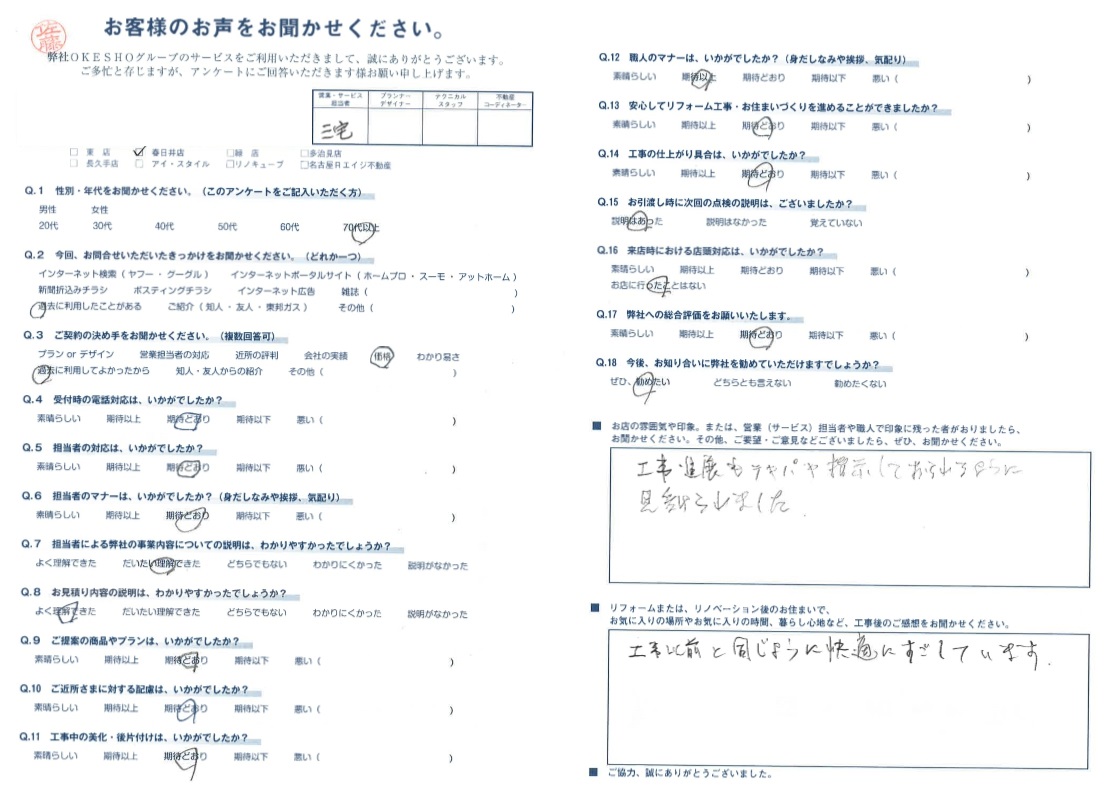 佐藤
お客様のお声をお聞かせください。
弊社OKESHOグループのサービスをご利用いただきまして、誠にありがとうございます。
ご多忙と存じますが、アンケートにご回答いただきます様お願い申し上げます。
営業・サービス担当者 プランナーデザイナー テクニカルスタッフ 不動産コーディネーター
三宅
□ 東 店 ☑ 春日井店 □緑 店 □多治見店
□ 長久手店 □ アイ・スタイル □リノキューブ □名古屋日エイジ不動産
Q.1 性別・年代をお聞かせください。（このアンケートをご記入いただく方）
男性 女性
20代 30代 40代 50代 60代 70代以上
Q.2 今回、お問合せいただいたきっかけをお聞かせください。（どれか一つ）
インターネット検索（ ヤフー ・ グーグル ） インターネットポータルサイト（ ホームプロ ・ スーモ ・ アットホーム ）
新聞折込みチラシ ポスティングチラシ インターネット広告 雑誌（ ）
過去に利用したことがある ご紹介（ 知人 ・ 友人 ・ 東邦ガス ） その他（ ）
Q.3 ご契約の決め手をお聞かせください。（複数回答可）
プラン or デザイン 営業担当者の対応 近所の評判 会社の実績 価格 わかり易さ
過去に利用してよかったから 知人・友人からの紹介 その他（ ）
Q.4 受付時の電話対応は、いかがでしたか？
素晴らしい 期待以上 期待どおり 期待以下 悪い（ ）
Q.5 担当者の対応は、いかがでしたか？
素晴らしい 期待以上 期待どおり 期待以下 悪い（ ）
Q.6 担当者のマナーは、いかがでしたか？（身だしなみや挨拶、気配り）
素晴らしい 期待以上 期待どおり 期待以下 悪い（ ）
Q.7 担当者による弊社の事業内容についての説明は、わかりやすかったでしょうか？
よく理解できた だいたい理解できた どちらでもない わかりにくかった 説明がなかった
Q.8 お見積り内容の説明は、わかりやすかったでしょうか？
よく理解できた だいたい理解できた どちらでもない わかりにくかった 説明がなかった
Q.9 ご提案の商品やプランは、いかがでしたか？
素晴らしい 期待以上 期待どおり 期待以下 悪い（ ）
Q.10 ご近所さまに対する配慮は、いかがでしたか？
素晴らしい 期待以上 期待どおり 期待以下 悪い（ ）
Q.11 工事中の美化・後片付けは、いかがでしたか？
素晴らしい 期待以上 期待どおり 期待以下 悪い（ ）
Q.12 職人のマナーは、いかがでしたか？（身だしなみや挨拶、気配り）
素晴らしい 期待以上 期待どおり 期待以下 悪い（ ）
Q.13 安心してリフォーム工事・お住まいづくりを進めることができましたか？
素晴らしい 期待以上 期待どおり 期待以下 悪い（ ）
Q.14 工事の仕上がり具合は、いかがでしたか？
素晴らしい 期待以上 期待どおり 期待以下 悪い（ ）
Q.15 お引渡し時に次回の点検の説明は、ございましたか？
説明はあった 説明はなかった 覚えていない
Q.16 来店時における店頭対応は、いかがでしたか？
素晴らしい 期待以上 期待どおり 期待以下 悪い（ ）
お店に行ったことはない
Q.17 弊社への総合評価をお願いいたします。
素晴らしい 期待以上 期待どおり 期待以下 悪い（ ）
Q.18 今後、お知り合いに弊社を勧めていただけますでしょうか？
ぜひ、勧めたい どちらとも言えない 勧めたくない
■ お店の雰囲気や印象。または、営業（サービス）担当者や職人で印象に残った者がおりましたら、
お聞かせください。その他、ご要望・ご意見などございましたら、ぜひ、お聞かせください。
工事進展もテキパキ指示しておられるように
見受けられました.
■ リフォームまたは、リノベーション後のお住まいで、
お気に入りの場所やお気に入りの時間、暮らし心地など、工事後のご感想をお聞かせください。
工事以前と同じように快適にすごしています.
■ ご協力、誠にありがとうございました。